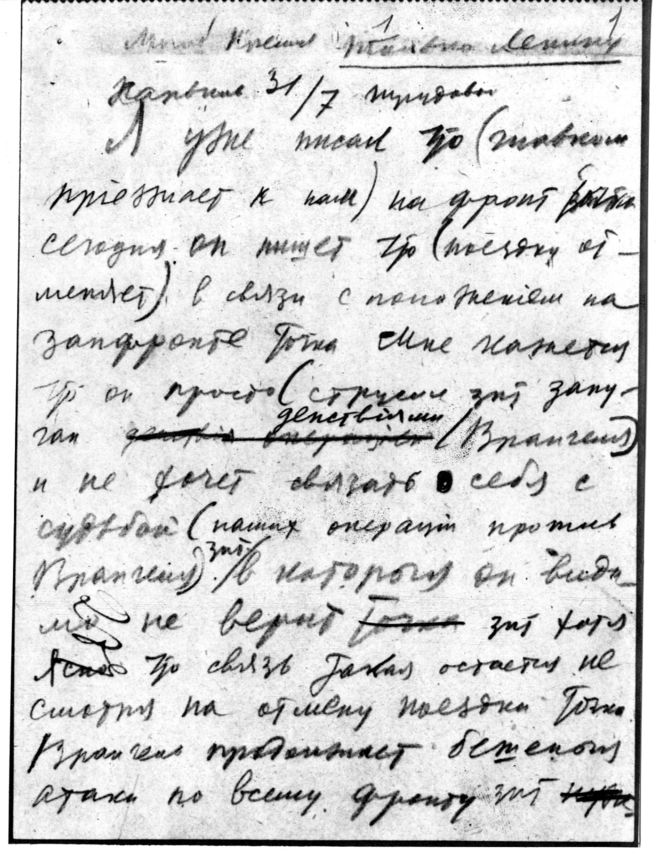 Москва Кремль Только Ленину
Харьков 31/7 трудовой
Я уже писал что (главком
пріезжает к нам) на фронт
сегодня он пишет что (поездку от-
меняет) в связи с положеніем на
запфронте точка Мне кажется
что он просто (струсил зпт запу-
ган действіями (Врангеля)
и не хочет связать себя с
судьбой (наших операціи против
Врангеля) зпт в которыя он види-
мо не верит точка зпт хотя
ясно что связь такая остается не
смотря на отмену поездки точка
Врангель продолжает бешеныя
атаки по всему фронту зпт